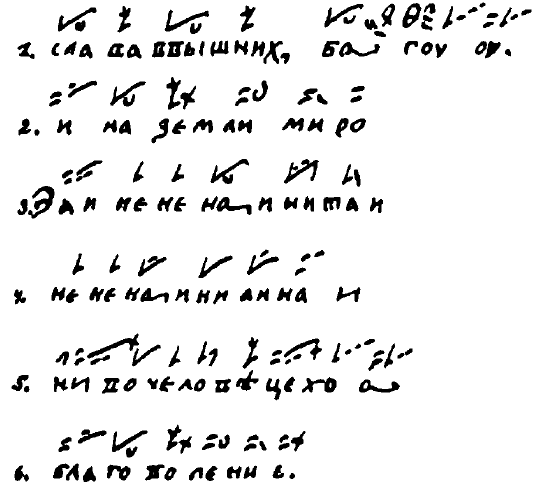 1. сла ва ввышних, ба гоу оу.
2. и на земли миро
3. а и не не на и ни та и
4. не не на и ни аи на и
5. ни во чело вѣ цехо а
6. благо воле ни е.